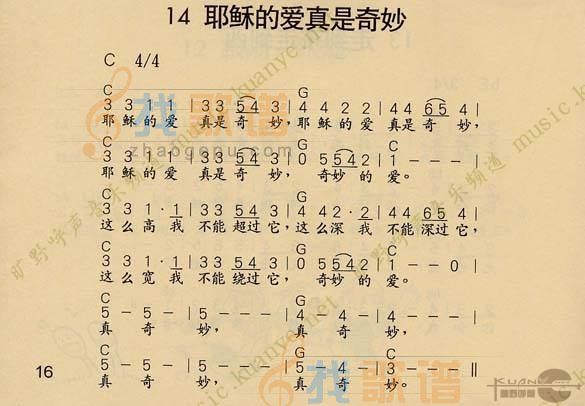 14 耶稣的爱真是奇妙
C 4/4
C G
3 3 1 1 | 3 3 5 4 3 | 4 4 2 2 | 4 4 6 5 4 |
耶稣的爱 真是奇妙，耶稣的爱 真是奇妙，
C G C
3 3 1 1 | 3 3 5 4 3 | 0 5 5 4 2 | 1 - - - |
耶稣的爱 真是奇妙， 奇妙的爱。
C G
3 3 1 · 1 | 3 3 5 4 3 | 4 4 2 · 2 | 4 4 6 5 4 |
这么高我 不能超过它，这么深我 不能深过它，
C G C
3 3 1 · 1 | 3 3 5 4 3 | 0 5 5 4 2 | 1 - - 0 |
这么宽我 不能绕过它， 奇妙的爱。
C G
5 - 4 - | 5 - - - | 4 - 3 - | 4 - - - |
真 奇 妙， 真 奇 妙，
C G C
5 - 5 - | 5 - - - | 5 - 4 - | 3 - - - ||
真 奇 妙， 真 奇 妙。
16
找歌谱
zhaogepu.com
找歌谱
旷野呼声音乐频道 music.kuanye.net
旷野呼声音乐频道 music.kuanye.net
KUANYE
旷野呼声